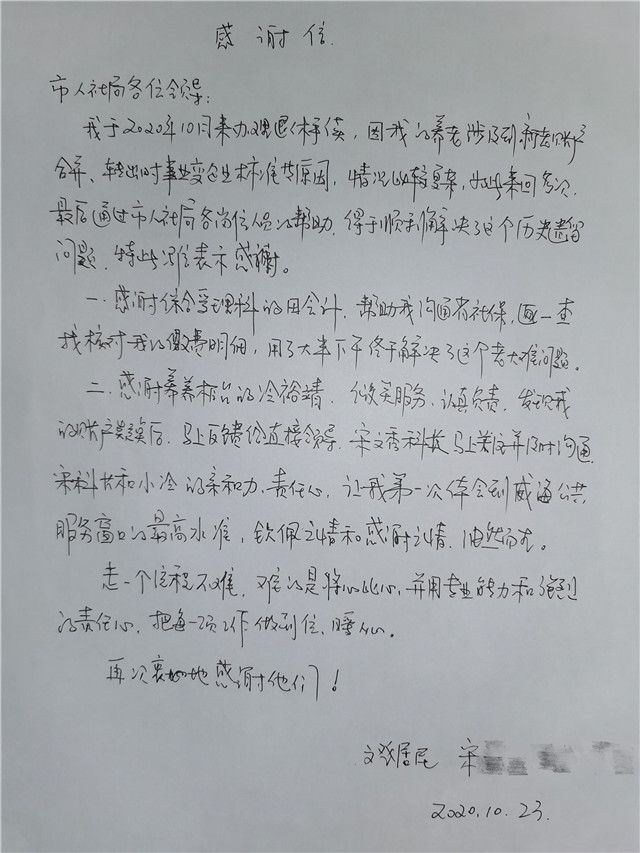 感谢信
市人社局各位领导:
我于2020年10月来办理退休手续,因我的养老涉及到新老账户
合并、转出时事业变企业标准等原因,情况比较复杂,如此来回多次,
最后通过市人社局各岗位人员的帮助,得于顺利解决了这个历史遗留
问题,特此写信表示感谢。
一、感谢综合受理科的田会计,帮助我沟通省社保,逐一查
找核对我的缴费明细,用了大半下午终于解决了这个老大难问题。
二、感谢养老柜台的冷裕靖,微笑服务、认真负责,发现我
的账户类误后,马上反馈给直接领导,宋文秀科长马上关注并及时沟通,
宋科长和小冷的亲和力、责任心,让我第一次体会到威海公共
服务窗口的最高水准,钦佩之情和感谢之情,油然而生。
走一个流程不难,难的是将心比心,并用专业能力和强烈
的责任心,把每一项工作做到位、暖心。
再次衷心地感谢他们!
文登居民 宋
2020.10.23.